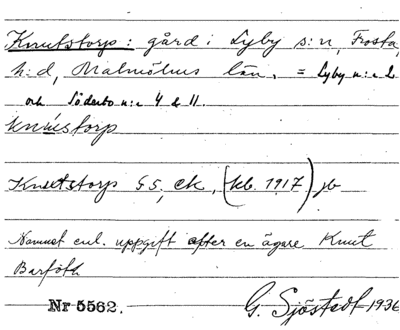 Knutstorp: gård i Lyby s:n, Frosta
h:d, Malmöhus län. = Lyby n:r 2
och Söderbo n:r 4 & 11.
Knutstorp
Knutstorp 55, ek, (kb. 1917) jb
Namnet enl. uppgift after en ägare Knut
Barfoth
Nr 5562. G. Sjöstedt 1936